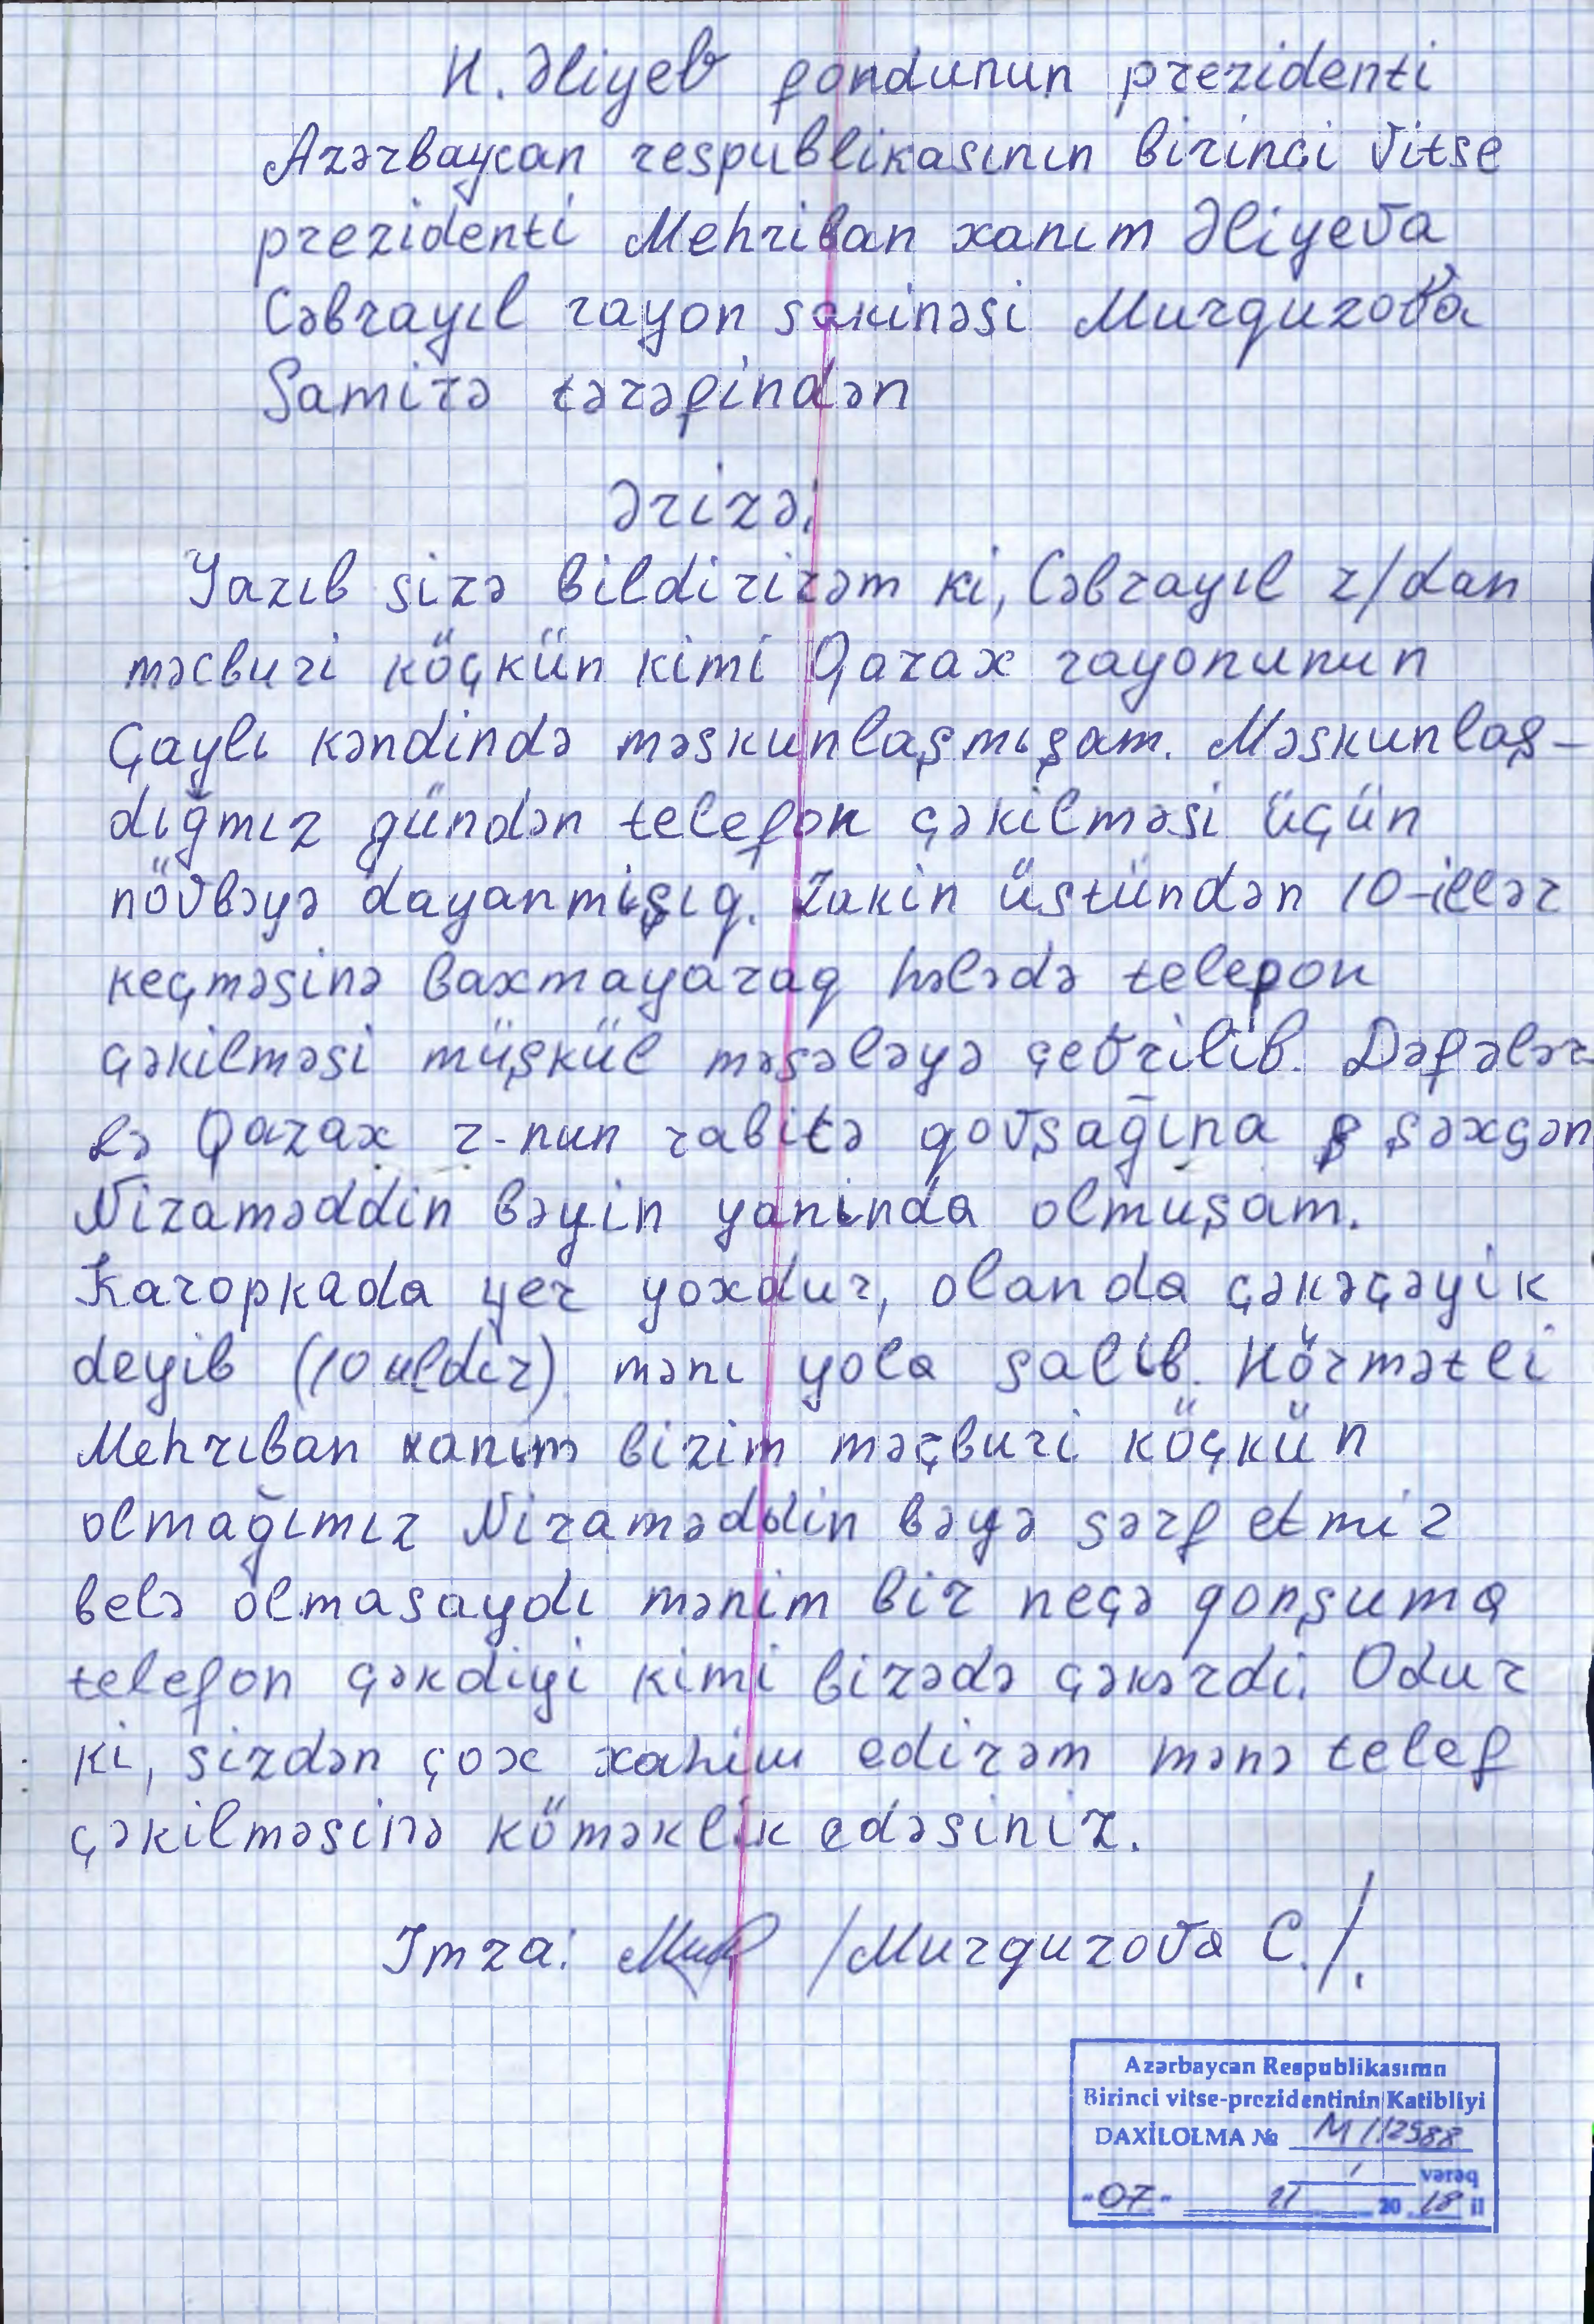 H. Əliyev fondunun prezidenti
Azərbaycan respublikasının birinci vitse
prezidenti Mehriban xanım Əliyeva
Cəbrayıl rayon sakinəsi Murquzova
Samirə tərəfindən
Ərizə.
Yazıb sizə bildirirəm ki, Cəbrayıl r/dan
məcburi köçkün kimi Qazax rayonunun
Çaylı kəndində məskunlaşmışam. Məskunlaş-
dığmız gündən telefon çəkilməsi üçün
növbəyə dayanmişıq. Lakin üstündən 10-illər
keçməsinə baxmayaraq hələdə telefon
çəkilməsi müşkül məsələyə çevrilib. Dəfələr
lə Qazax r-nun rabitə qovşağına şəxsən
Nizaməddin bəyin yanında olmuşam.
Karopkada yer yoxdur, olanda çəkəçəyik
deyib (10 ildir) mənı yola salıb. Hörmətli
Mehrıban xanım bizim məçburi köçkün
olmağımız Nizaməddin bəyə sərf etmir
belə olmasaydı mənim bir neçə qonşuma
telefon çəkdiyi kimi bizədə çəkərdi. Odur
ki, sizdən çox xahiш edirəm mənə telef
çəkilməsinə köməklik edəsiniz.
Imza: /Murquzova C./.
Azərbaycan Respublikasının
Birinci vitse-prezidentinin Katibliyi
DAXİLOLMA № M/12588
1 vərəq
"07" 11 2018 il